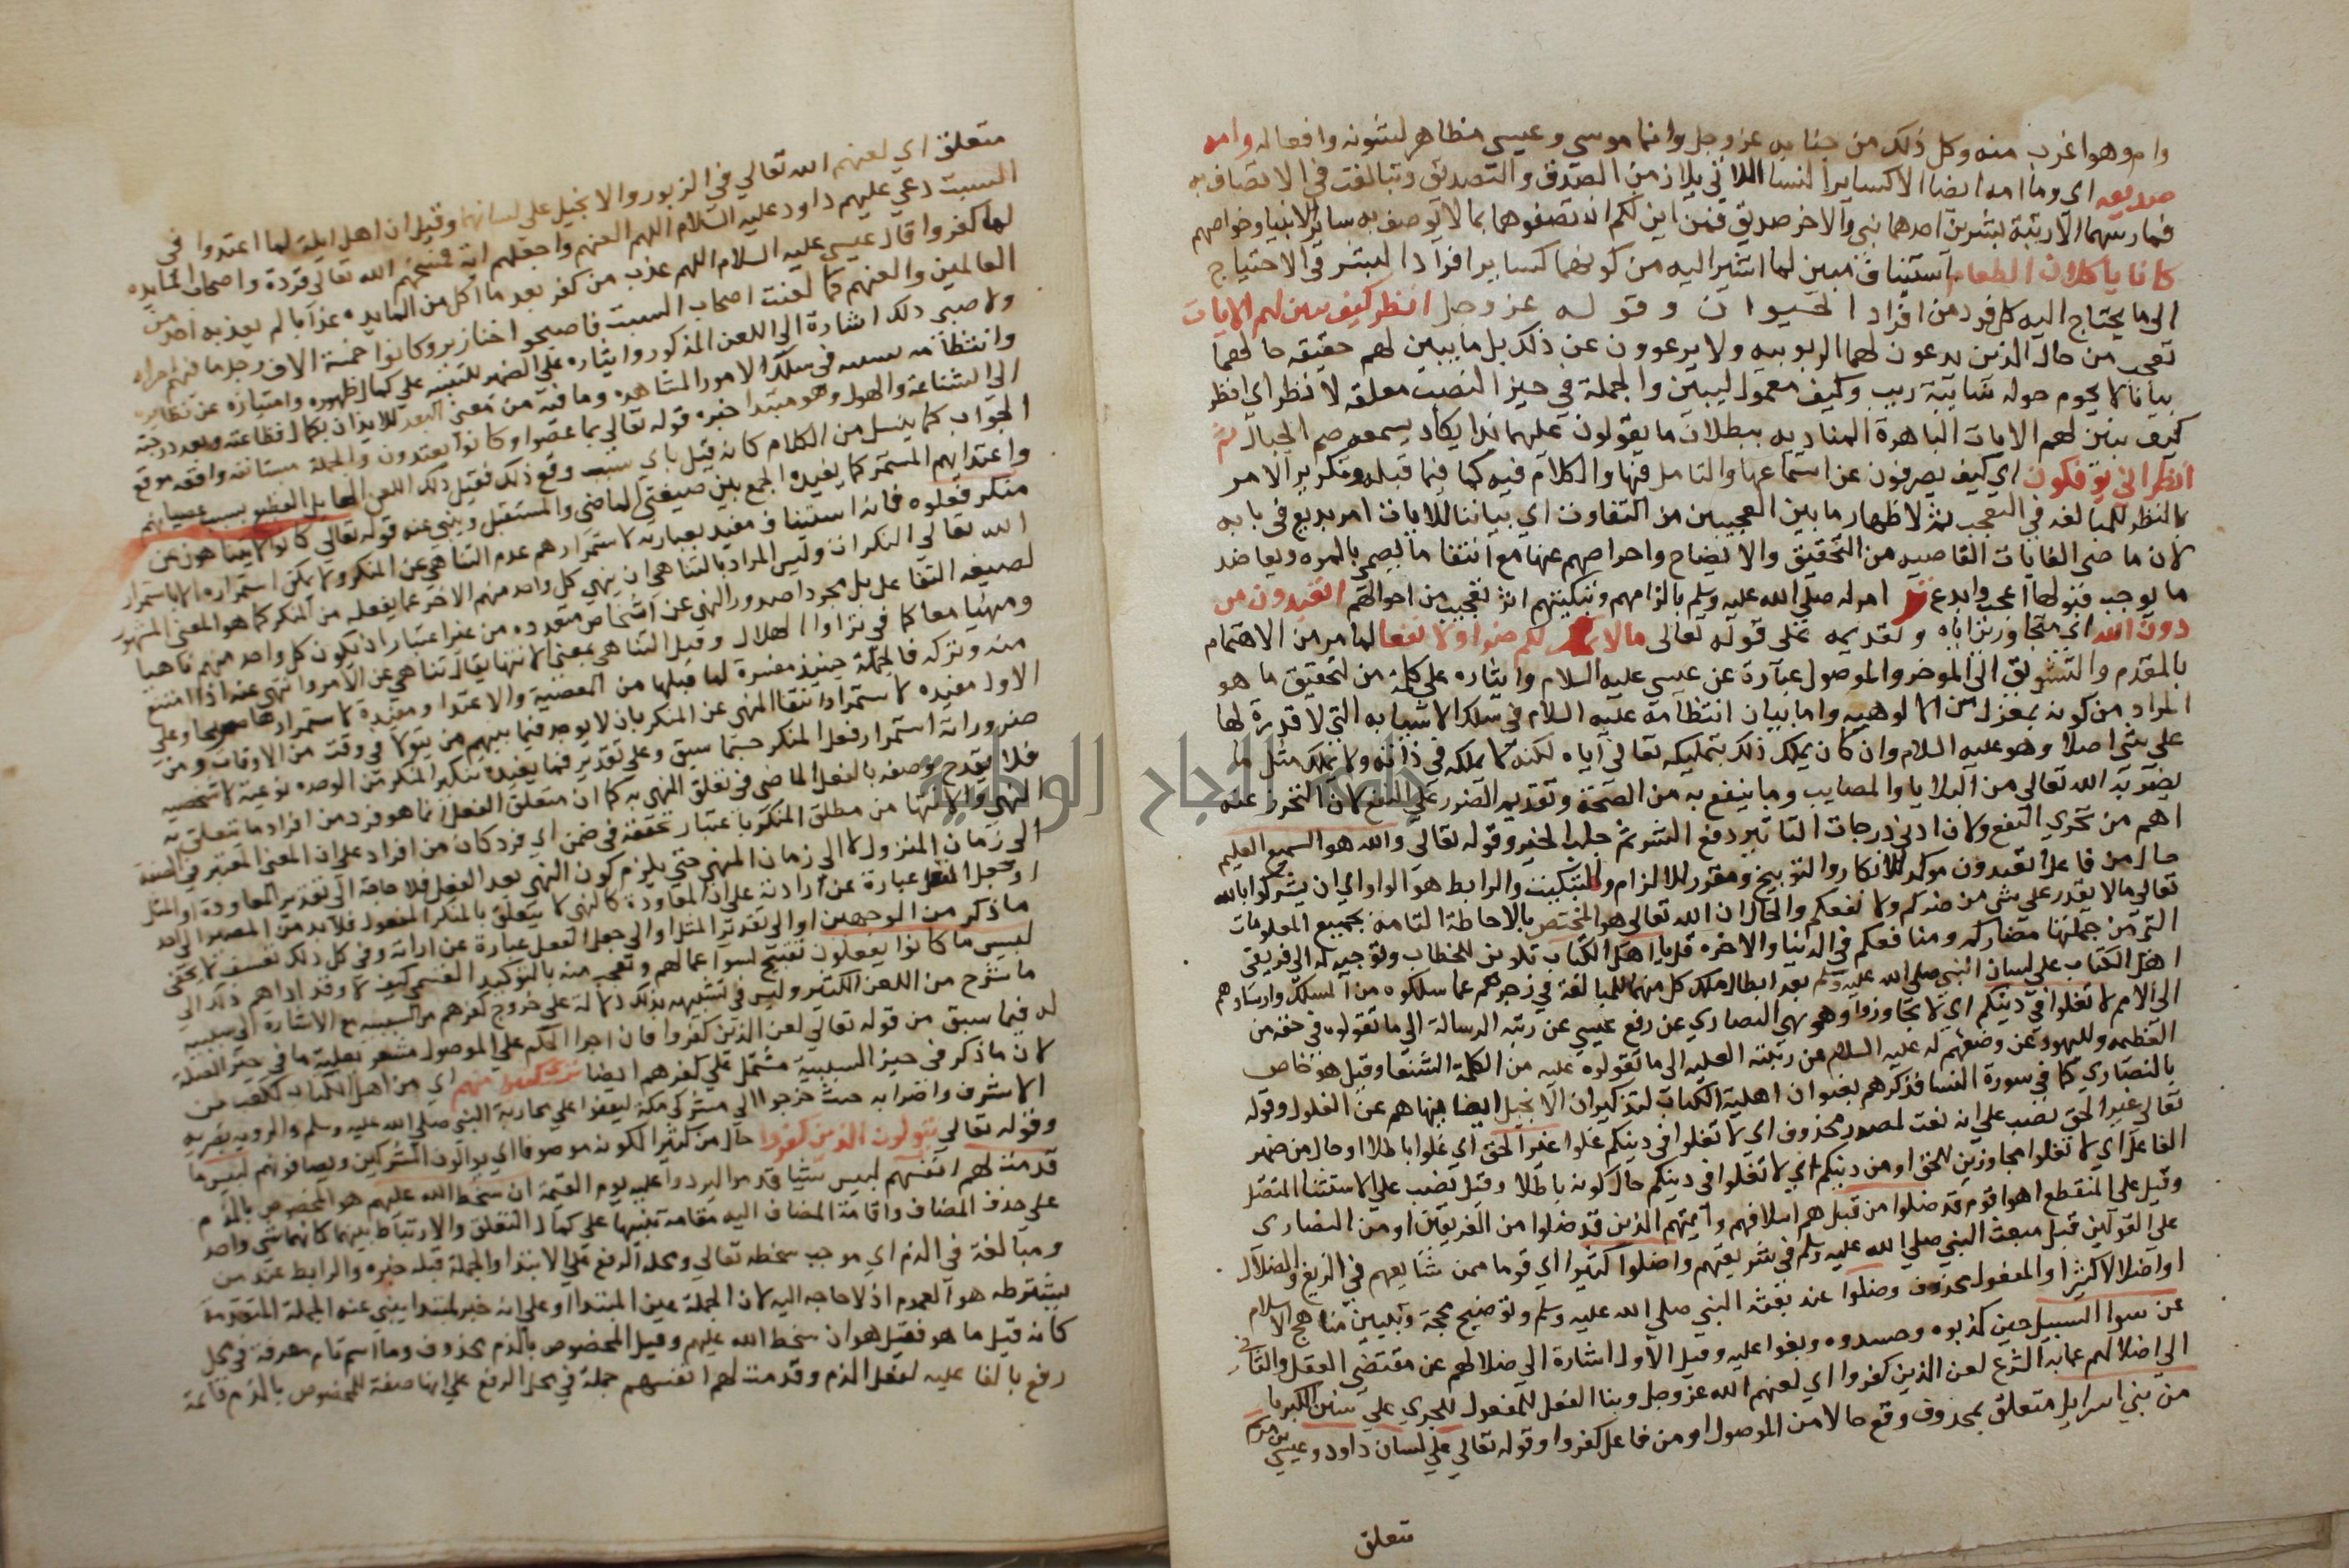 وام وهوا غرب منه وكل ذلك من جنابه عز وجل وانما موسى وعيسى مظاهر لشئونه وافعاله وامه
صديقه اي وما امه ايضا الا كساير النسا اللاتي يلازمن الصدق والتصديق ويبالغن في الاتصاف به
فما رتبتهما الا رتبة بشرين احدهما نبي والاخر صديق فمن اين لكم ان تصفوهما بما لا يوصف به ساير الانبيا وخواصهم
كانا ياكلان الطعام استيناف مبين لما اشير اليه من كونهما كساير افراد البشر في الاحتياج
الى ما يحتاج اليه كل فرد من افراد الحيوان وقوله عز وجل انظر كيف نبين لهم الايات
تعجيب من حال الذين يدعون لهما الربوبيه ولا يرعوون عن ذلك بل ما يبين لهم حقيقه حالهما
بيانا لا يحوم حوله شايبة ريب وكيف معمول ليبين والجملة في حيز النصب معلقه لا نظر اي انظر
كيف نبين لهم الايات الباهرة المناديه ببطلان ما يقولون عليهما ندا يكاد يسمعه صم الجبال ثم
انظر اني يوفكون اي كيف يصرفون عن استماعها والتامل فيها والكلام فيه كما فيما قبله وتكرير الامر
بالنظر للمبالغه في التعجيب ثم لاظهار ما بين العجيبين من التفاوت اي بياننا للايات امر بديع في بابه
لان ما ضي الغايات القاصيه من التحقيق والايضاح واعراضهم عنها مع انتفا ما يصحح بالمره ويعاضد
ما يوجب قبولها اعجب وابدع قل امر له صلي الله عليه وسلم بالزامهم وتبكيتهم اثر تعجيب من احوالهم اتعبدون من
دون الله اي متجاوزين اياه وتقديمه على قوله تعالى مالا يملك لكم ضرا ولا نفعا لما مر من الاهتمام
بالمقدم والتشويق الى الموخر والموصول عبارة عن عيسى عليه السلام وايثاره على كلمة من لتحقيق ما هو
المراد من كونه بمعزل من الالوهيه واما ببيان انتظامه عليه السلام في سلك الاشيا به التي لا قدرة لها
علي شي اصلا وهو عليه السلام وان كان يملك ذلك بتمليكه تعالى اياه لكنه لا يملكه في ذاته ولا يملك مثل ما
يضر به الله تعالى من البلايا والمصايب وما ينفع به من الصحة وتقديم الضرر على النفع لان التحرز عنه
اهم من تحري النفع ولان ادني درجات التاثير دفع الشر ثم جلب الخير وقوله تعالى والله هو السميع العليم
حال من فاعل اتعبدون موكد للانكار والتوبيخ ومقرر للالزام والتبكيت والرابط هو الواو اي ان يشركوا بالله
تعالى مالا يقدر على شي من ضركم ولا نفعكم والحال ان الله تعالى هو المختص بالاحاطة التامه بجميع المعلومات
التي من جملتها مضاركم ومنافعكم في الدنيا والاخره قل يا اهل الكتاب تلوين للخطاب وتوجيه له الى فريقي
اهل الكتاب على لسان النبي صلي الله عليه وسلم بعد ابطال مسلك كل منهما للمبالغة في زجرهم عما سلكوه من المسلك وارشادهم
الى الامم لا تغلوا في دينكم اي لا تجاوزوا وهو نهي النصاري عن رفع عيسى عن رتبه الرسالة الى ما تقولوه في حقه من
العظيمه ولليهود عن وضعهم له عليه السلام من رتبته العليه الى ما تقولوه عليه من الكلمة الشنعا وقيل هو خاص
بالنصاري كما في سورة النسا فذكرهم بعنوان اهلية الكتاب لتذكير ان الانجيل ايضا ينهاهم عن الغلو وقوله
تعالى غير الحق نصب على انه نعت لمصدر محذوف اي لا تغلوا في دينكم غلوا غير الحق اي غلوا باطلا او حال من ضمير
الفاعل اي لا تغلوا مجاوزين للحق او من دينكم اي لا تغلوا في دينكم حال كونه باطلا وقيل نصب علي الاستثنا المتصل
وقيل علي المنقطع اهوا قوم قد ضلوا من قبل هم اسلافهم وايمتهم الذين قد ضلوا من الفريقين او من النصارى
على القولين قبل مبعث النبي صلي الله عليه وسلم في شريعتهم واضلوا كثيرا اي قوما ممن شايعهم في الزيغ والضلال
او اضلالا كثيرا والمفعول محذوف وضلوا عند بعثه النبي صلي الله عليه وسلم وتوضيح محجة وتبيين مناهج الاسلام
عن سوا السبيل حين كذبوه وحسدوه وبغوا عليه وقيل الاول اشارة الى ضلالهم عن مقتضى العقل والثاني
الى اضلالهم عما به الشرع لعن الذين كفروا اي لعنهم الله عز وجل وبنا الفعل للمفعول للجري علي سنن الكبريا
من بني اسرايل متعلق بمحذوف وقع حالا من الموصول او من فاعل كفروا وقوله تعالى علي لسان داود وعيسى بن مريم
متعلق
متعلق اي لعنهم الله تعالى في الزبور والانجيل على لسانهما وقيل ان اهل ايلة لما اعتدوا في
السبت دعي عليهم داود عليه السلام اللهم العنهم واجعلهم اية فمسخهم الله تعالى قردة واصحاب المايده
لما كفروا قال عيسى عليه السلام اللهم عذب من كفر بعد ما اكل من المايده عذابا لم يعذبه احد من
العالمين والعنهم كما لعنت اصحاب السبت فاصبحوا خنازير وكانوا خمسة الاف رجل ما فيهم امراه
ولا صبي ذلك اشارة الى اللعن المذكور وايثاره على الضمير للتنبيه على كمال ظهوره وامتيازه عن نظايره
وانتظامه بسببه في سلك الامور المشاهده وما فيه من معنى البعد للايذان بكمال فظاعته وبعد درجته
الى الشناعة والهول وهو مبتدا خبره قوله تعالى بما عصوا وكانوا يعتدون والجملة مستانفه واقعه موقع
الجواب كما ينسل من الكلام كانه قيل باي سبب وقع ذلك فقيل ذلك اللعن الهايل الفظيع بسبب عصيانهم
واعتدايهم المستمر كما يفيده الجمع بين صيغتي الماضي والمستقبل وينبي عنه قوله تعالى كانوا لا يتناهون عن
منكر فعلوه فانه استيناف مفيد بعبارته لاستمرارهم عدم التناهي عن المنكر ولا يمكن استمراره الا باستمرار
الله تعالى المنكرات وليس المراد بالتناهي ان ينهي كل واحد منهم الاخر عما يفعله من المنكر كما هو المعنى المشهور
لصيغه التفاعل بل مجرد اصدور النهي عن اشخاص متعدده من غير اعتبار ان يكون كل واحد منهم ناهيا
ومنهيا معا كما في تراوا الهلال وقيل التناهي بمعنى الانتها يقال تناهي عن الامر وانتهى عنه اذا امتنع
منه وتركه فالجملة حينيذ مفسرة لما قبلها من المعصية والاعتدا ومفيدة لاستمرارهما صريحا وعلى
الاول مفيده لاستمرار انتفا النهي عن المنكر بان لا يوجد فيما بينهم من يتولاه في وقت من الاوقات ومن
ضرورانه استمرار فعل المنكر حسبما سبق وعلى تقدير فيما يفيده تنكير المنكر من الوحده نوعية لا شخصيه
فلا يقدح وصفه بالفعل الماضي في تعلق النهي به كما ان متعلق الفعل انما هو فرد من افراد ما تتعلق به
النهي والانتها من مطلق المنكر باعتبار تحققه في ضمن اي فرد كان من افراد على ان المعنى المعتبر في الصفة
الى زمان المنزول لا الي زمان النهي حتي يلزم كون النهي بعد الفعل فلا حاجة الى تقدير المعاودة او المثل
او جعل الفعل عبارة عن ارادته علي ان المعاودة كالنهي لا يتعلق بالمنكر المفعول فلا بد من المصير الى احد
ما ذكر من الوجهين او الى تقدير المثل او الى جعل الفعل عبارة عن ارادته وفي كل ذلك تعسف لا يخفى
لبيس ما كانوا يفعلون تقبيح لسوا عمالهم وتعجيب منه بالتوكيد القسمي كيف لا وقد اداهم ذلك الى
ما شرح من اللعن الكبير وليس في تسببه بذلك دلالة على خروج كفرهم من السببيه مع الاشارة الى سببيته
له فيما سبق من قوله تعالى لعن الذين كفروا فان اجرا الحكم علي الموصول مشعر بعلية ما في حيز الصلة
لان ما ذكر في حيز السببية مشتمل على كفرهم ايضا ترى كثيرا منهم اي من اهل الكتاب ككعب بن
الاشرف واضرابه حيث خرجوا الى مشركي مكة ليتفقوا علي محاربة النبي صلي الله عليه وسلم والرويه بصريه
وقوله تعالى يتولون الذين كفروا حال من كثيرا لكونه موصوفا اي يوالون المشركين ويصافونهم لبيس ما
قدمت لهم انفسهم لبيس شيئا قدموا ليردوا عليه يوم القيمة ان سخط الله عليهم هو المخصوص بالذم
علي حذف المضاف واقامة المضاف اليه مقامه تنبيها على كمال التعلق والارتباط بينهما كانهما شي واحد
ومبالغة في الذم اي موجب سخطه تعالى ومحله الرفع على الابتدا والجملة قبله خبره والرابط عند من
يشترطه هو العموم اذ لا حاجه اليه لان الجملة عين المبتدا او علي انه خبر لمبتدا ينبي عنه الجملة المتقدمة
كانه قيل ما هو فقيل هو ان سخط الله عليهم وقيل المخصوص بالذم محذوف وما اسم تام معرفة في محل
رفع بالفاعليه لفعل الذم وقدمت لهم انفسهم جملة في محل الرفع علي انها صفة للمخصوص بالذم قايمة